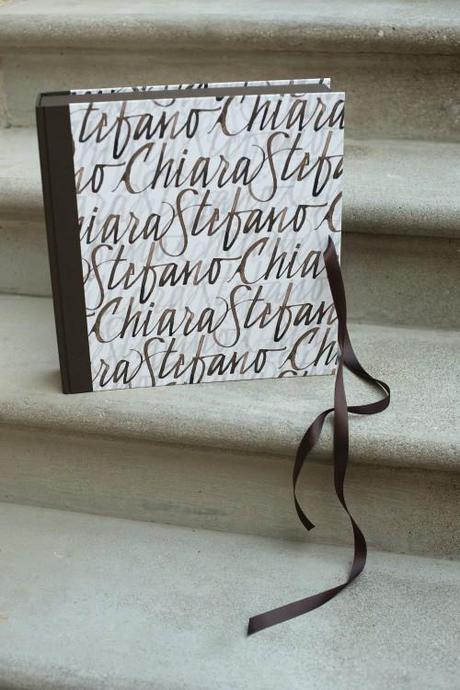 tefano Chiara
no Chiara Stefa
hiara Stefano C
Stefano Chia
Chiara Stefan
ra Stefano Ch